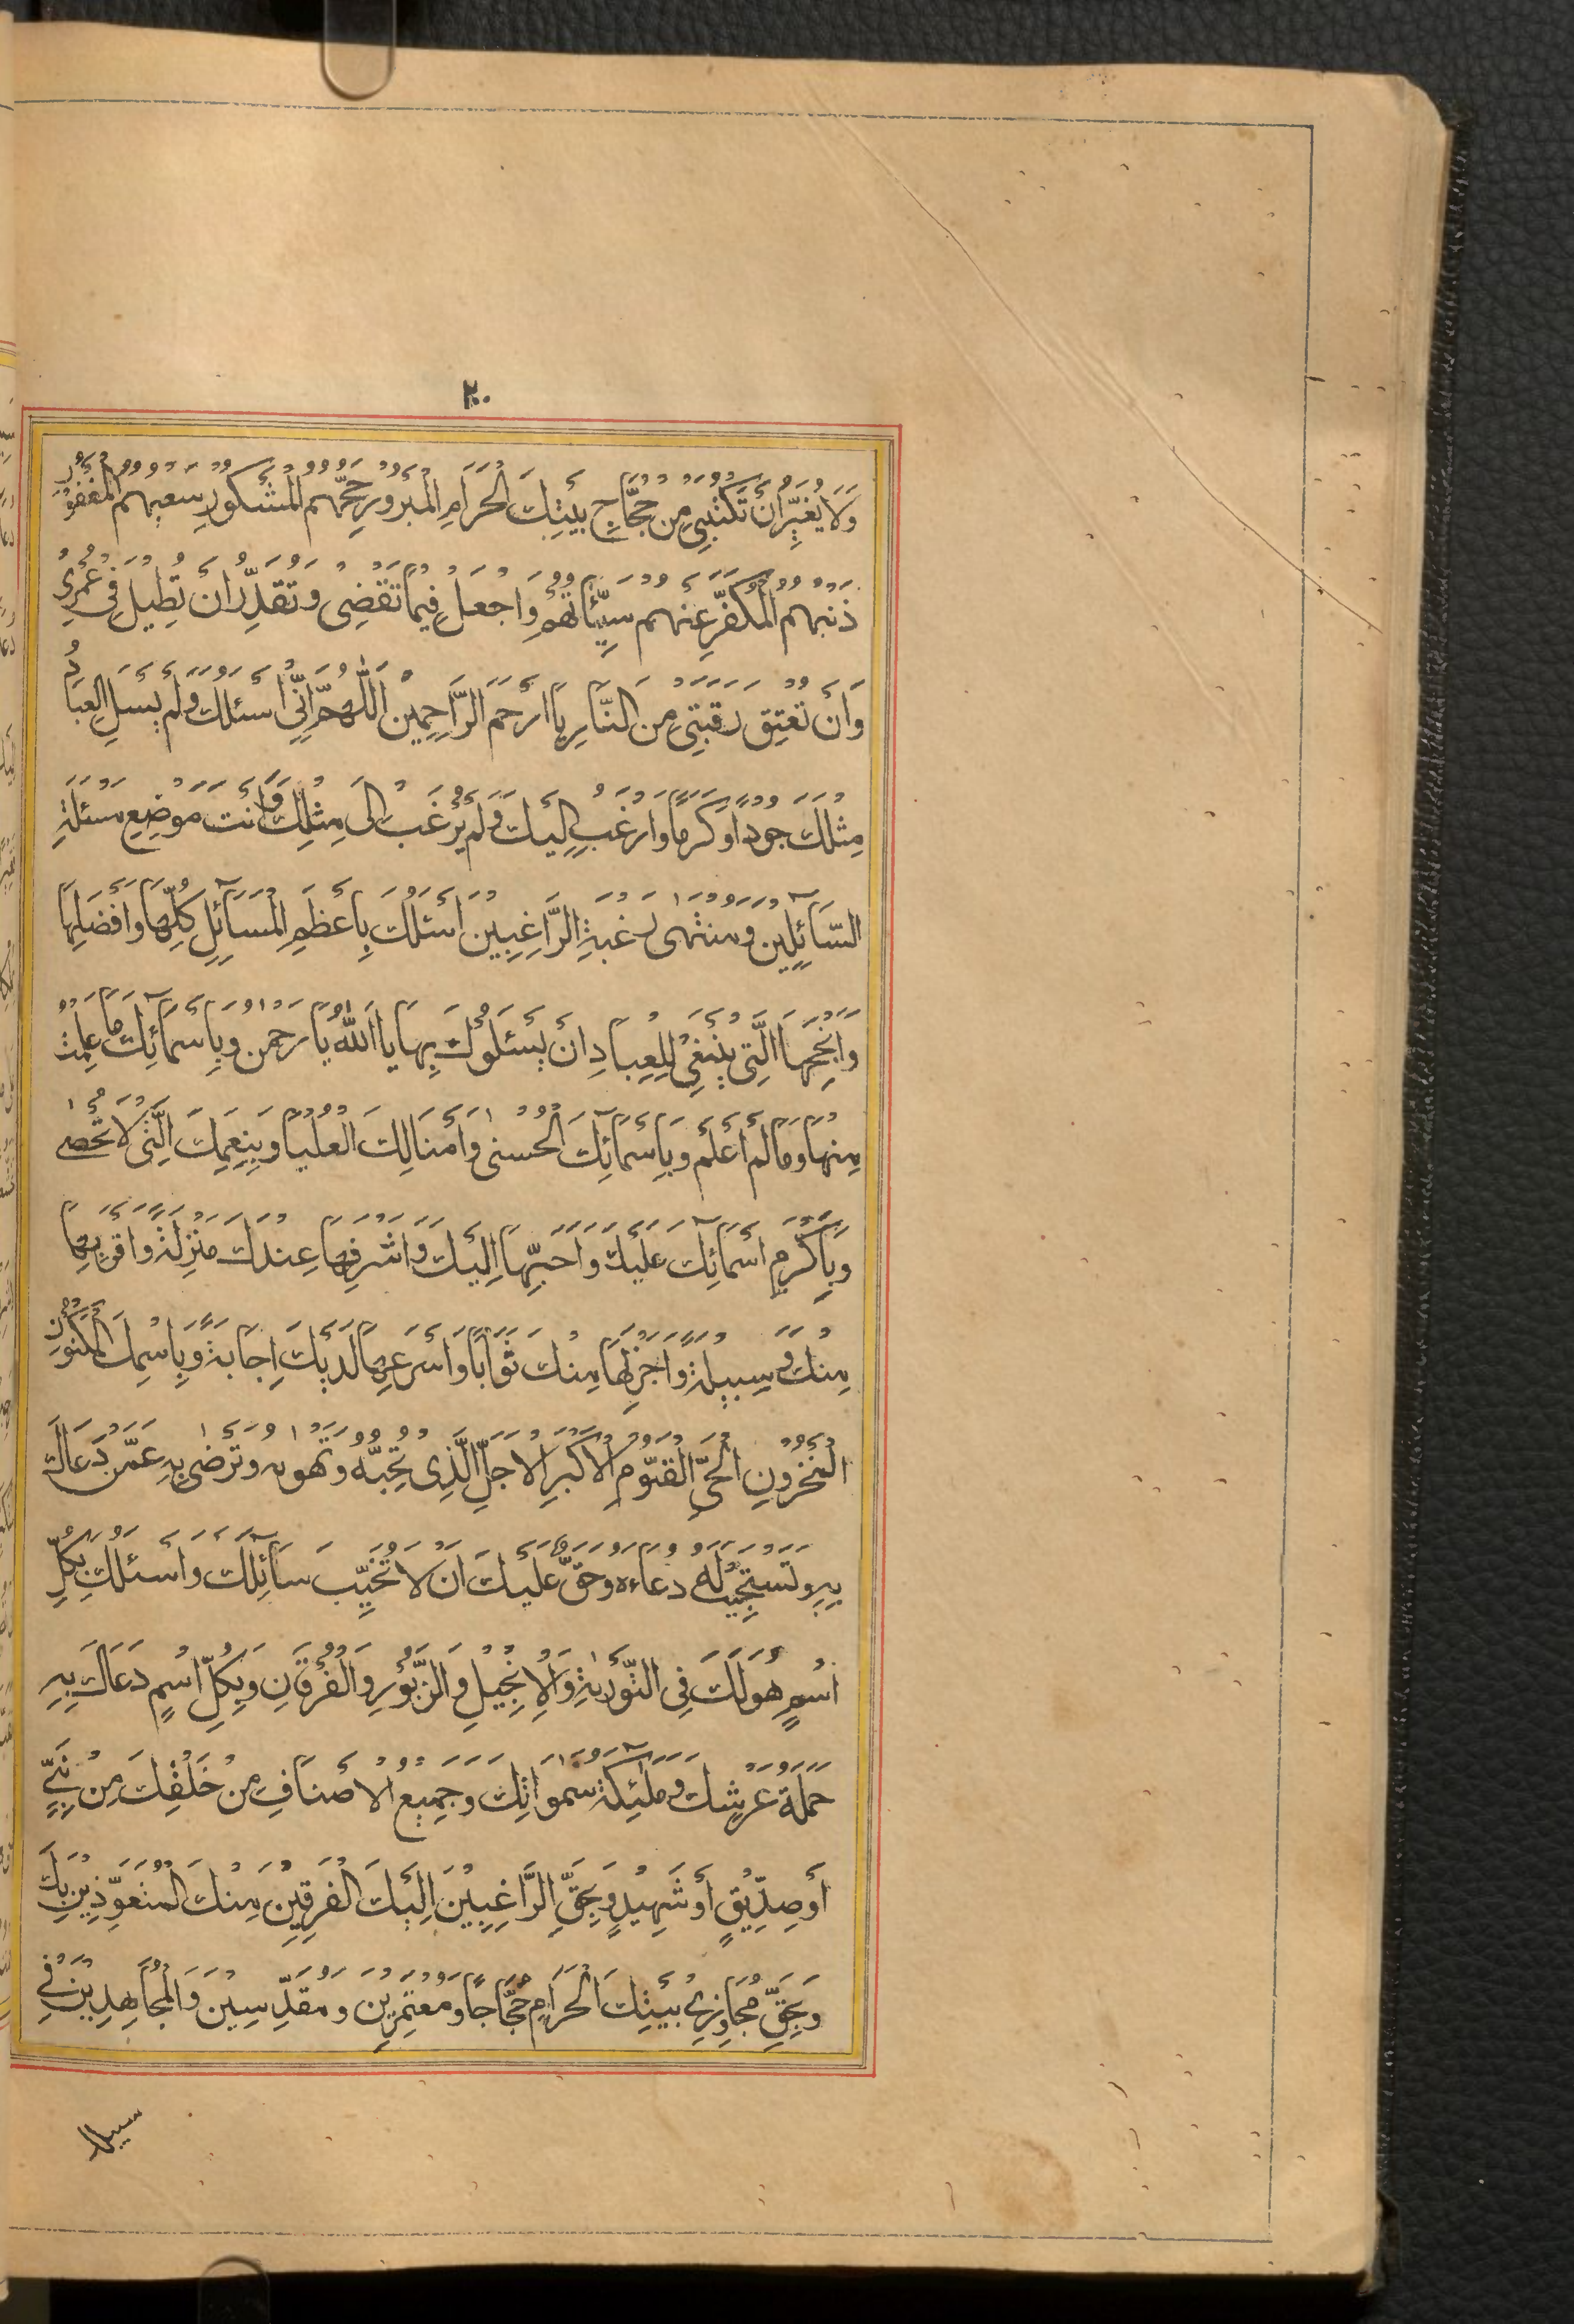 ٢٠
وَلَا يُغَيَّرُ اَنْ تَكْتُبَنِي مِنْ حُجَّاجِ بَيْتِكَ الْحَرَامِ الْمَبْرُورِ حَجُّهُمُ الْمَشْكُورِ سَعْيُهُمُ الْمَغْفُورِ
ذَنْبُهُمُ الْمُكَفَّرِ عَنْهُمْ سَيِّئَاتُهُمْ وَاجْعَلْ فِيمَا تَقْضِي وَتُقَدِّرُ اَنْ تُطِيلَ فِي عُمُرِي
وَاَنْ تُعْتِقَ رَقَبَتِي مِنَ النَّارِ يَا اَرْحَمَ الرَّاحِمِينَ اَللّٰهُمَّ اِنِّي اَسْئَلُكَ وَلَمْ يَسْئَلِ الْعِبَادُ
مِثْلَكَ جُودًا وَكَرَمًا وَاَرْغَبُ اِلَيْكَ وَلَمْ يُرْغَبْ اِلَى مِثْلِكَ وَاَنْتَ مَوْضِعُ مَسْئَلَةِ
السَّآئِلِينَ وَمُنْتَهٰى رَغْبَةِ الرَّاغِبِينَ اَسْئَلُكَ بِاَعْظَمِ الْمَسَآئِلِ كُلِّهَا وَاَفْضَلِهَا
وَاَنْجَحِهَا الَّتِي يَنْبَغِي لِلْعِبَادِ اَنْ يَسْئَلُوكَ بِهَا يَا اَللّٰهُ يَا رَحْمٰنُ وَبِاَسْمَآئِكَ مَا عَلِمْتُ
مِنْهَا وَمَا لَمْ اَعْلَمْ وَبِاَسْمَآئِكَ الْحُسْنٰى وَاَمْثَالِكَ الْعُلْيَا وَبِنِعَمِكَ الَّتِي لَا تُحْصٰى
وَبِاَكْرَمِ اَسْمَآئِكَ عَلَيْكَ وَاَحَبِّهَا اِلَيْكَ وَاَشْرَفِهَا عِنْدَكَ مَنْزِلَةً وَاَقْرَبِهَا
مِنْكَ وَسِيلَةً وَاَجْزَلِهَا مِنْكَ ثَوَابًا وَاَسْرَعِهَا لَدَيْكَ اِجَابَةً وَبِاسْمِكَ الْمَكْنُونِ
الْمَخْزُونِ الْحَيِّ الْقَيُّومِ الْاَكْبَرِ الْاَجَلِّ الَّذِي تُحِبُّهُ وَتَهْوٰيهُ وَتَرْضٰى بِهِ عَمَّنْ دَعَاكَ
بِهِ وَتَسْتَجِيبُ لَهُ دُعَاءَهُ وَحَقٌّ عَلَيْكَ اَنْ لَا تُخَيِّبَ سَآئِلَكَ وَاَسْئَلُكَ بِكُلِّ
اسْمٍ هُوَ لَكَ فِي التَّوْرٰيةِ وَالْاِنْجِيلِ وَالزَّبُورِ وَالْفُرْقَانِ وَبِكُلِّ اسْمٍ دَعَاكَ بِهِ
حَمَلَةُ عَرْشِكَ وَمَلٰٓئِكَةُ سَمٰوَاتِكَ وَجَمِيعُ الْاَصْنَافِ مِنْ خَلْقِكَ مِنْ نَبِيٍّ
اَوْ صِدِّيقٍ اَوْ شَهِيدٍ وَبِحَقِّ الرَّاغِبِينَ اِلَيْكَ الْفَرِقِينَ مِنْكَ الْمُتَعَوِّذِينَ بِكَ
وَبِحَقِّ مُجَاوِرِي بَيْتِكَ الْحَرَامِ حُجَّاجًا وَمُعْتَمِرِينَ وَمُقَدِّسِينَ وَالْمُجَاهِدِينَ فِي
سبيلك